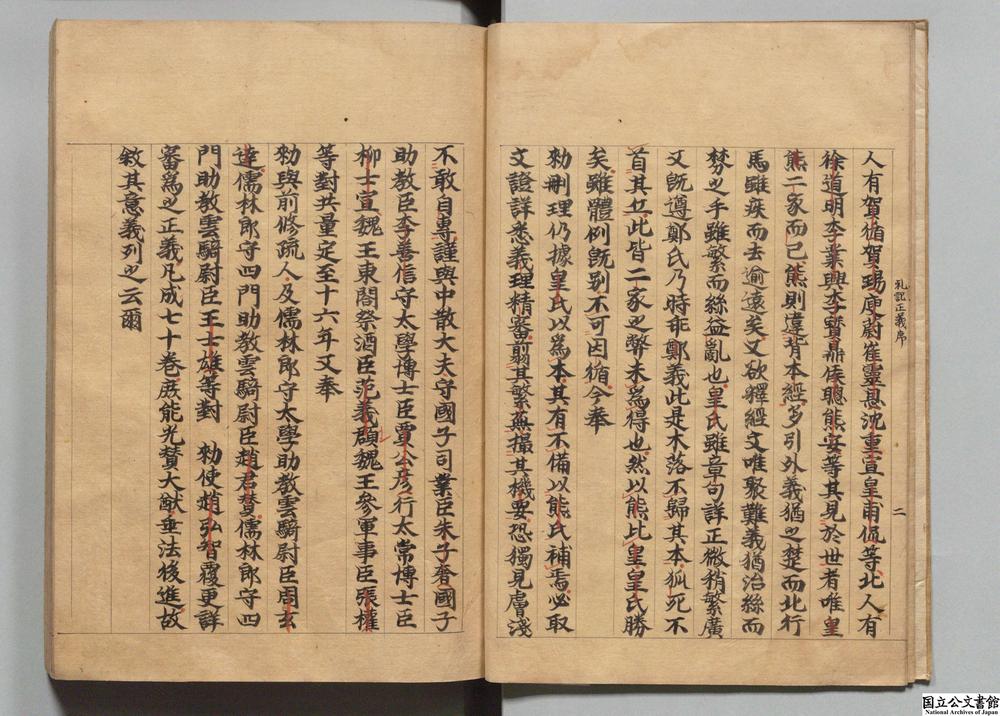 人有賀循賀瑒庾蔚崔靈恩沈重宣皇甫侃等北人有
徐道明李業興李寶鼎侯聰熊安等其見於世者唯皇
熊二家而已熊則違背本經多引外義猶之楚而北行
馬雖疾而去逾遠矣又欲釋經文唯聚難義猶治絲而
棼之手雖繁而絲益亂也皇氏雖章句詳正微稍繁廣
又既遵鄭氏乃時乖鄭義此是木落不歸其本狐死不
首其丘此皆二家之弊未為得也然以熊比皇皇氏勝
矣雖體例既别不可因循今奉
勑刪理仍據皇氏以為本其有不備以熊氏補焉必取
文證詳悉義理精審翦其繁蕪撮其機要恐獨見膚淺
礼記正義序
二
不敢自專謹與中散大夫守國子司業臣朱子奢國子
助教臣李善信守太學博士臣賈公彦行太常博士臣
柳士宣魏王東閣祭酒臣范義頵魏王參軍事臣張權
等對共量定至十六年又奉
勑與前修疏人及儒林郎守太學助教雲騎尉臣周玄
達儒林郎守四門助教雲騎尉臣趙君賛儒林郎守四
門助教雲騎尉臣王士雄等對 勑使趙弘智覆更詳
審為之正義凡成七十卷庶能光賛大猷垂法後進故
敘其意義列之云爾
国立公文書館
National Archives of Japan